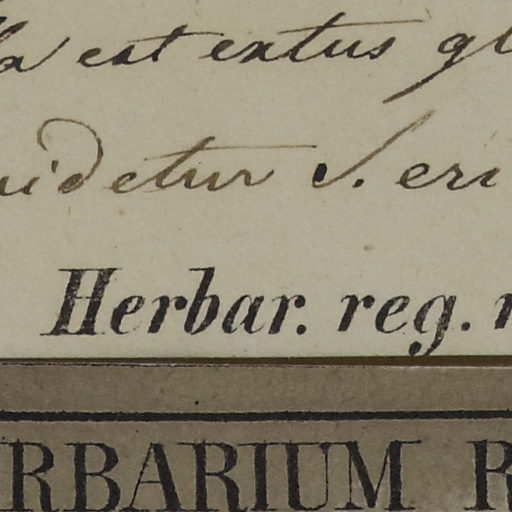 la est extus gl
uidetur S. eri
Herbar. reg. m
RBARIUM R